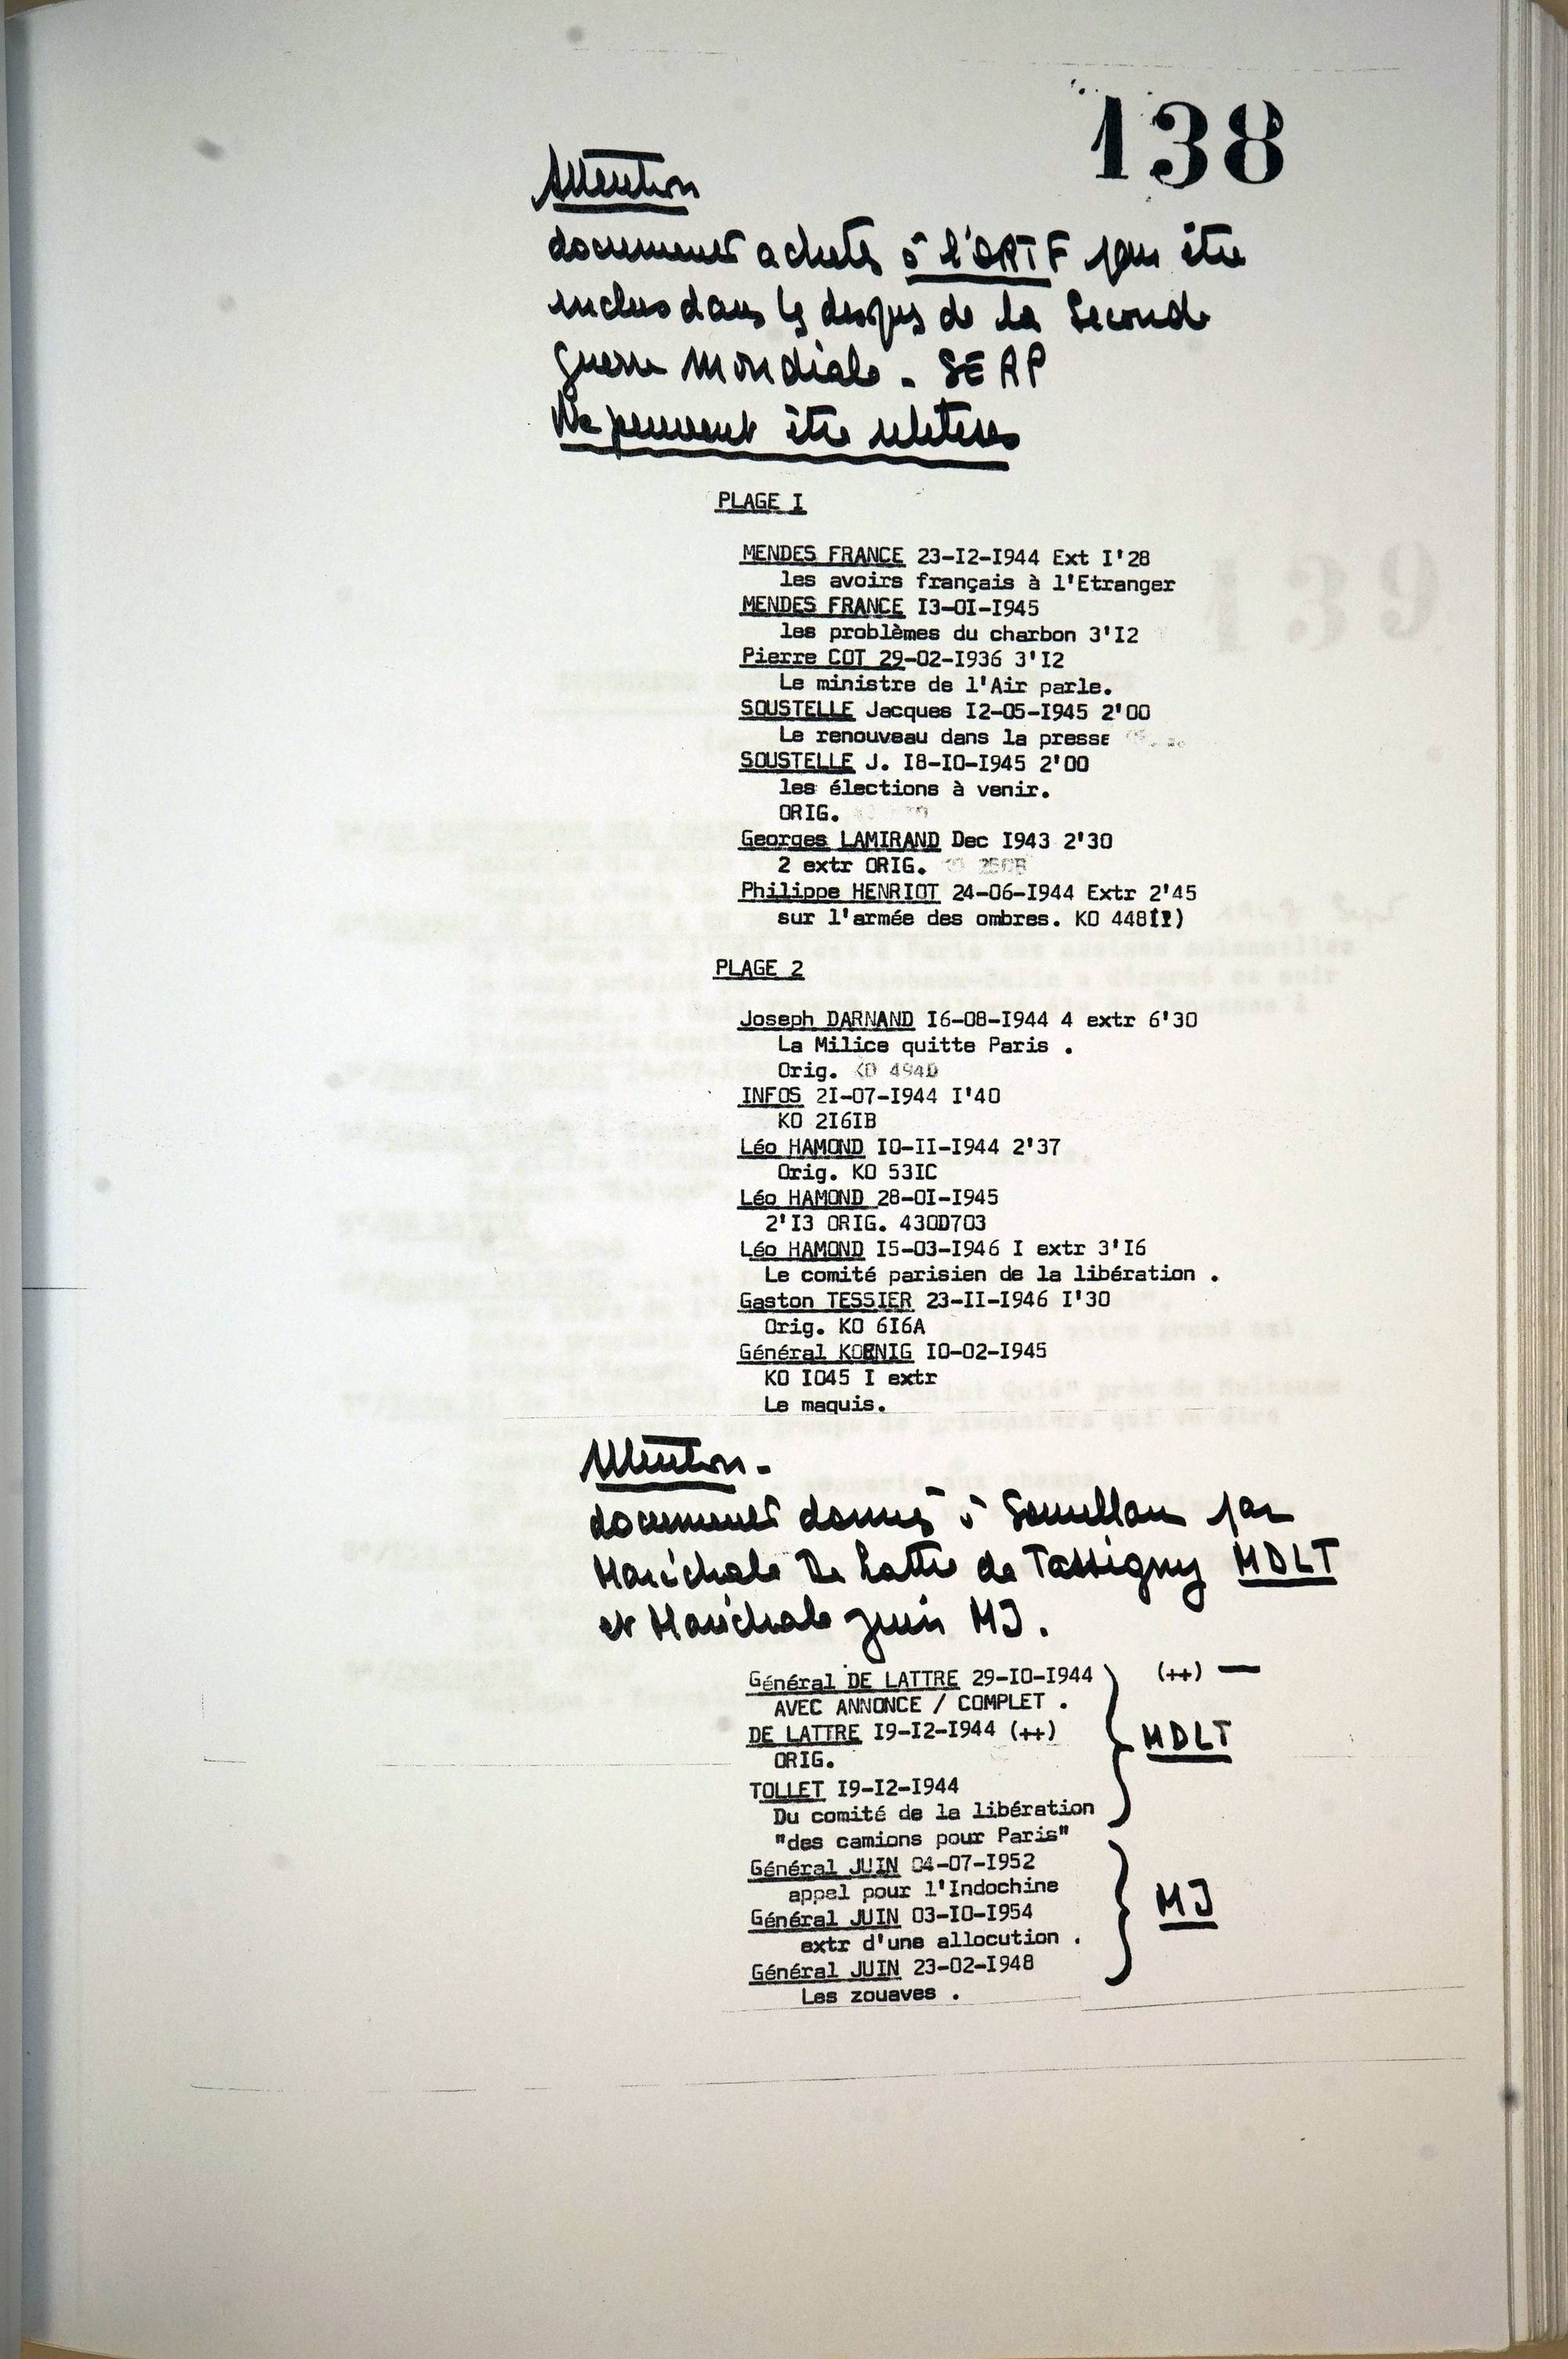 138
Attention
documents achetés à l'ORTF pour être
inclus dans les disques de la Seconde
guerre Mondiale - SERP
Ne peuvent être
PLAGE I
MENDES FRANCE 23-I2-I944 Ext I'28
les avoirs français à l'Etranger
MENDES FRANCE I3-OI-I945
les problèmes du charbon 3'I2
Pierre COT 29-02-I936 3'I2
Le ministre de l'Air parle.
SOUSTELLE Jacques I2-05-I945 2'00
Le renouveau dans la presse
SOUSTELLE J. I8-IO-I945 2'00
les élections à venir.
ORIG.
Georges LAMIRAND Dec I943 2'30
2 extr ORIG.
Philippe HENRIOT 24-06-I944 Extr 2'45
sur l'armée des ombres. KO
PLAGE 2
Joseph DARNAND I6-08-I944 4 extr 6'30
La Milice quitte Paris .
Orig. KO 494D
INFOS 2I-07-I944 I'40
KO 2I6IB
Léo HAMOND IO-II-I944 2'37
Orig. KO 53IC
Léo HAMOND 28-OI-I945
2'I3 ORIG. 430D703
Léo HAMOND I5-03-I946 I extr 3'I6
Le comité parisien de la libération .
Gaston TESSIER 23-II-I946 I'30
Orig. KO 6I6A
Général KOENIG IO-02-I945
KO IO45 I extr
Le maquis.
Attention -
documents donnés à par
Maréchale De Lattre de Tassigny MDLT
et Maréchale Juin MJ.
Général DE LATTRE 29-IO-I944 (++) —
AVEC ANNONCE / COMPLET .
DE LATTRE I9-I2-I944 (++) MDLT
ORIG.
TOLLET I9-I2-I944
Du comité de la libération
"des camions pour Paris"
Général JUIN 04-07-I952
appel pour l'Indochine MJ
Général JUIN 03-IO-I954
extr d'une allocution .
Général JUIN 23-02-I948
Les zouaves .